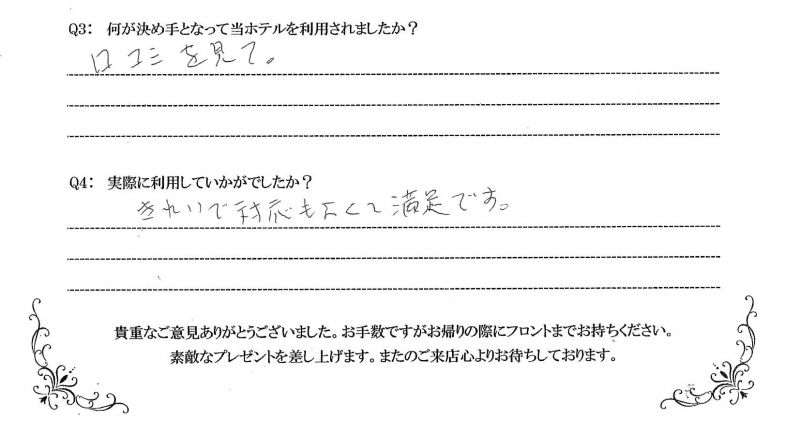 Q3： 何が決め手となって当ホテルを利用されましたか？
口コミを見て。
Q4： 実際に利用していかがでしたか？
きれいで対応もよくて満足です。
貴重なご意見ありがとうございました。お手数ですがお帰りの際にフロントまでお持ちください。
素敵なプレゼントを差し上げます。またのご来店心よりお待ちしております。